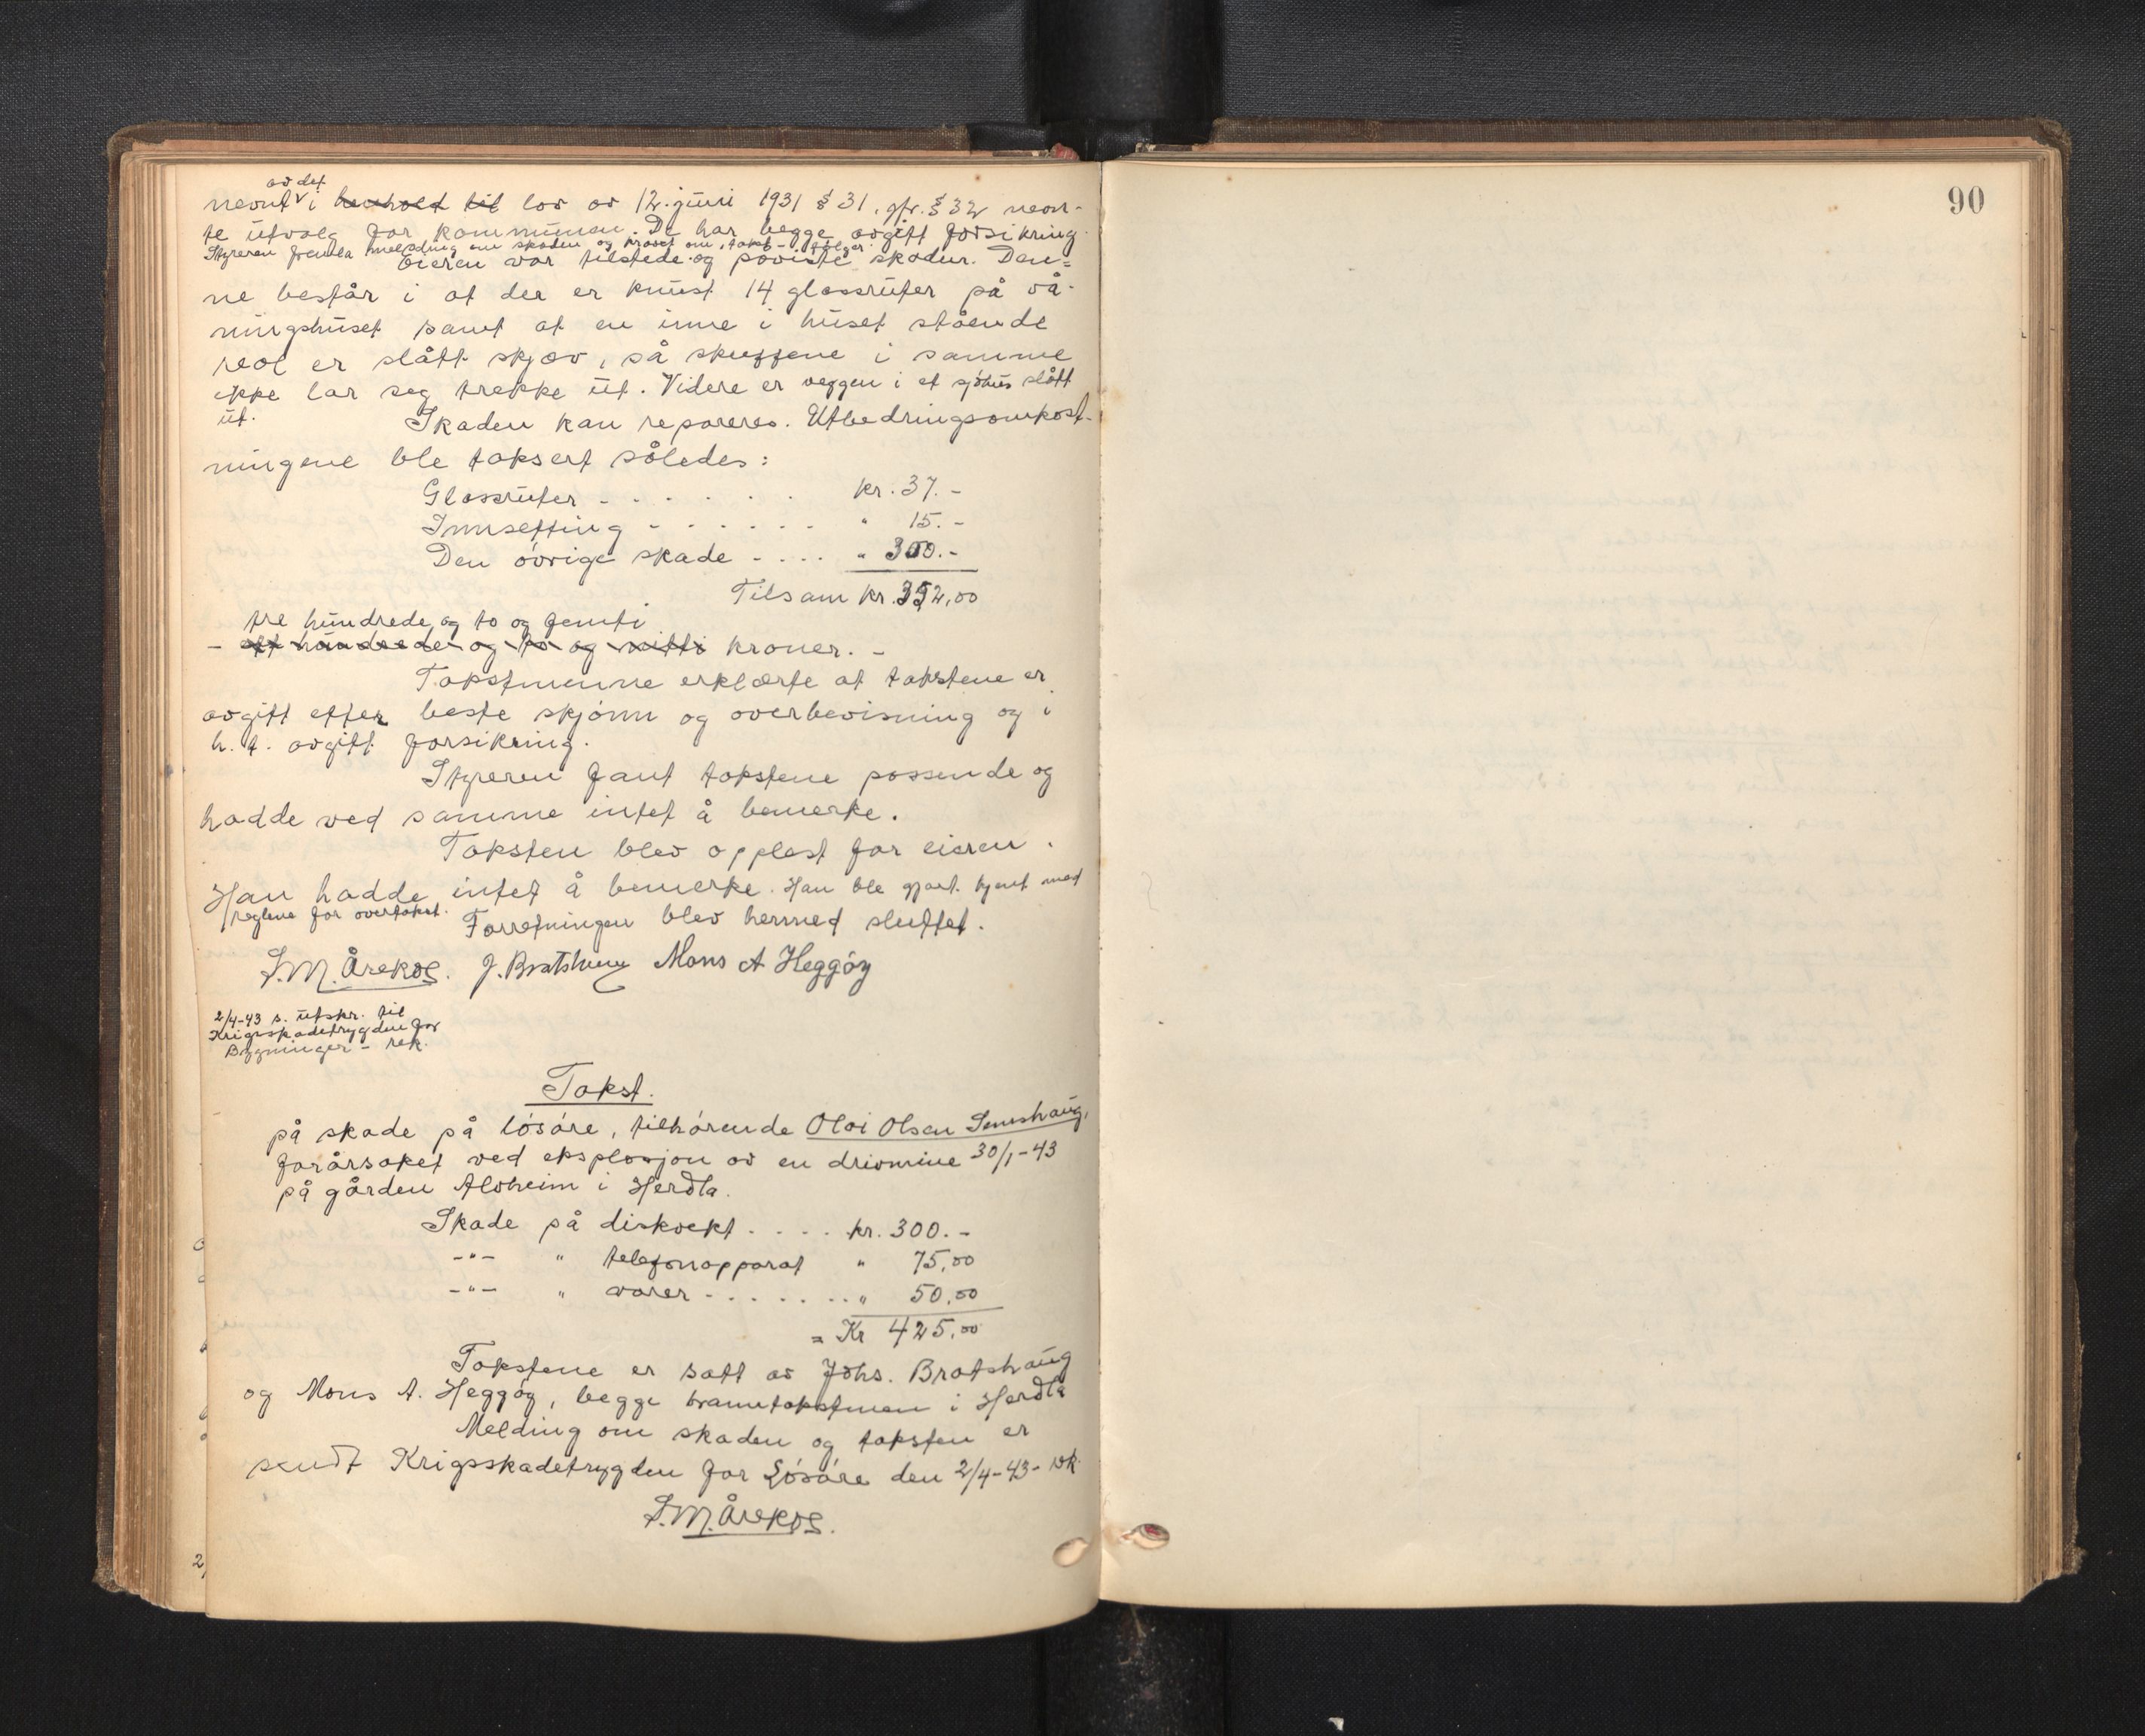 nevnt av det i henhold til lov av 12. juni 1931 § 31, jfr. § 32 nevn-
te utvalg for kommunen. De har begge avgitt forsikring.
Styreren fremla melding om skaden og krav om takst - følger.
Eieren var tilstede og påviste skaden. Den-
ne består i at der er knust 14 glassruter på vå-
ningshuset samt at en inne i huset stående
reol er slått skjev, så skuffene i samme
ikke lar seg trekke ut. Videre er veggen i et sjøhus slått
ut.
Skaden kan repareres. Utbedringsomkost-
ningene ble taksert således:
Glassruter - - - - - - kr. 37.-
Innsetting - - - - - - " 15.-
Den øvrige skade - . . . . " 300.-
Tilsam kr. 352,00
tre hundrede og to og femti
- ett hundrede og to og nitti kroner. -
Takstmenne erklærte at takstene er
avgitt etter beste skjønn og overbevisning og i
h. t. avgitt forsikring.
Styreren fant takstene passende og
hadde ved samme intet å bemerke.
Taksten blev opplest for eieren.
Han hadde intet å bemerke. Han ble gjort kjent med
reglene for overtakst.
Forretningen blev hermed sluttet.
J. Bratshaug Mons A Heggøy
2/4-43 s. utskr. til
Krigsskadetrygden for
Bygninger - rek.
Takst.
på skade på løsøre, tilhørende Olai Olsen
forårsaket ved eksplosjon av en drivmine 30/1-43
på gården Alvheim i Herdla.
Skade på diskvekt . . . . kr. 300.-
-"- " telefonapparat " 75,00
-"- " varer - . . . . . . . " 50,00
= Kr 425,00
Takstene er satt av Johs. Bratshaug
og Mons A. Heggøy, begge branntakstmen i Herdla
Melding om skaden og taksten er
sendt Krigsskadetrygden for Løsøre den 2/4-43 - rek.
90